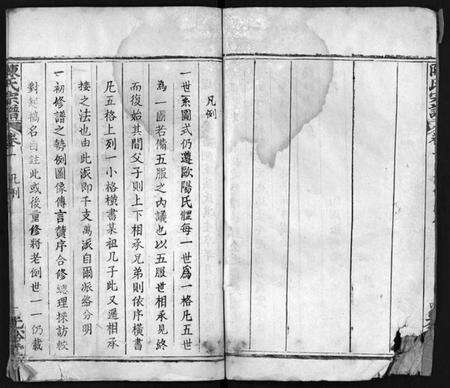 陳氏宗譜
卷一
凡例
一世系圖式仍遵歐陽氏體每一世為一格凡五世
為一圖若備五服之內議也以五服世相承見終
而復始其間父子則上下相承兄弟則依序橫書
凡五格上列一小格橫書某祖几子此又遞相承
接之法也由此派卽千支萬派自爾派絡分明
一初修譜之勢例圖像傳言贊序合修總理採訪校
對短搞名自註此或後重修將老倒世一一仍載
陳氏宗譜
卷一
凡例